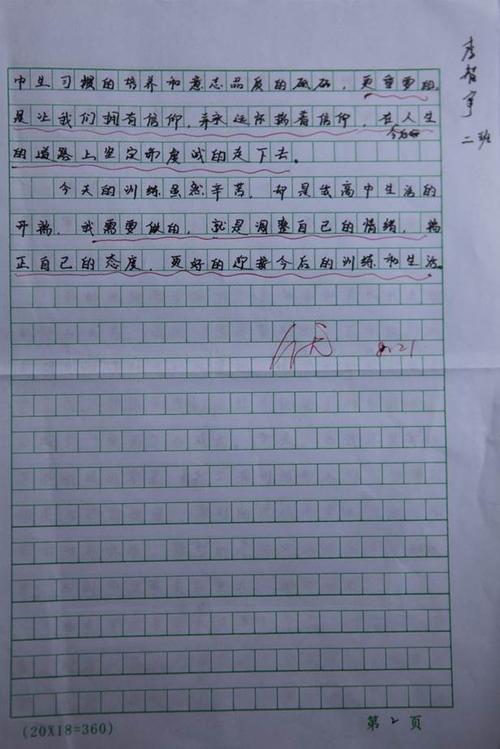 李智宇
二班
中生习惯的培养和意志品质的砥砺，更重要的
是让我们拥有信仰，并永远怀揣着信仰，在人生
今后
的道路上坚定和虔诚的走下去。
今天的训练虽然辛苦，却是我高中生活的
开端，我需要做的，就是调整自己的情绪，端
正自己的态度，更好的迎接今后的训练和生活。
优
8.21
(20X18=360)
第2页